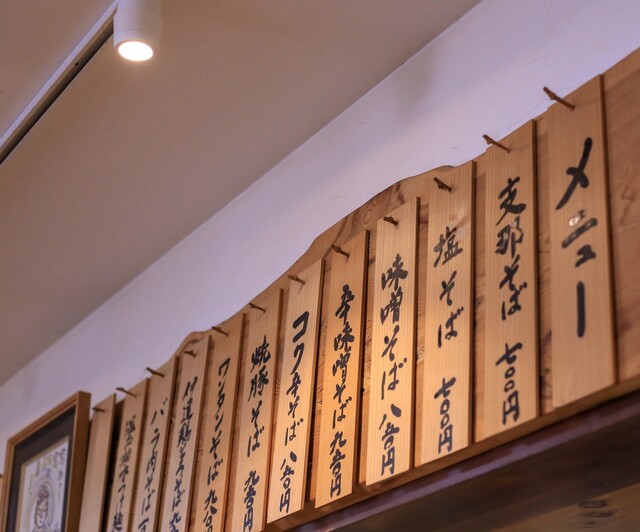 メニュー
支那そば 七〇〇円
塩そば 七〇〇円
味噌そば 八五〇円
辛味噌そば 九五〇円
コク辛そば 八五〇円
焼豚そば 九五〇
ワンタンそば 九
バラ肉そば